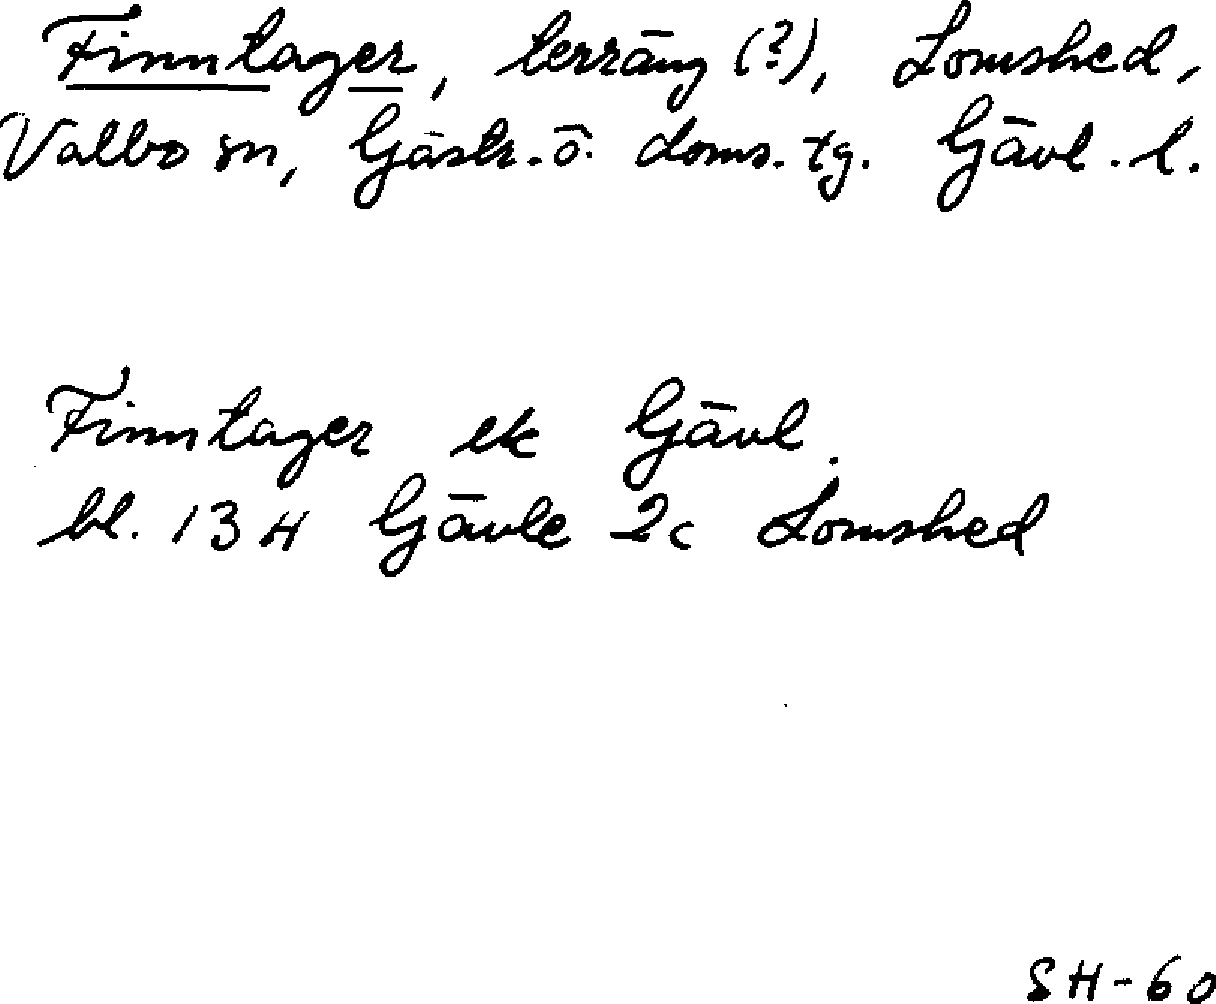 Finntager, terräng (?), Lomshed,
Valbo sn, Gästr. ö. doms. tg. Gävl. l.
Finntager ek Gävl.
bl. 13 H Gävle 2c Lomshed
SH-60